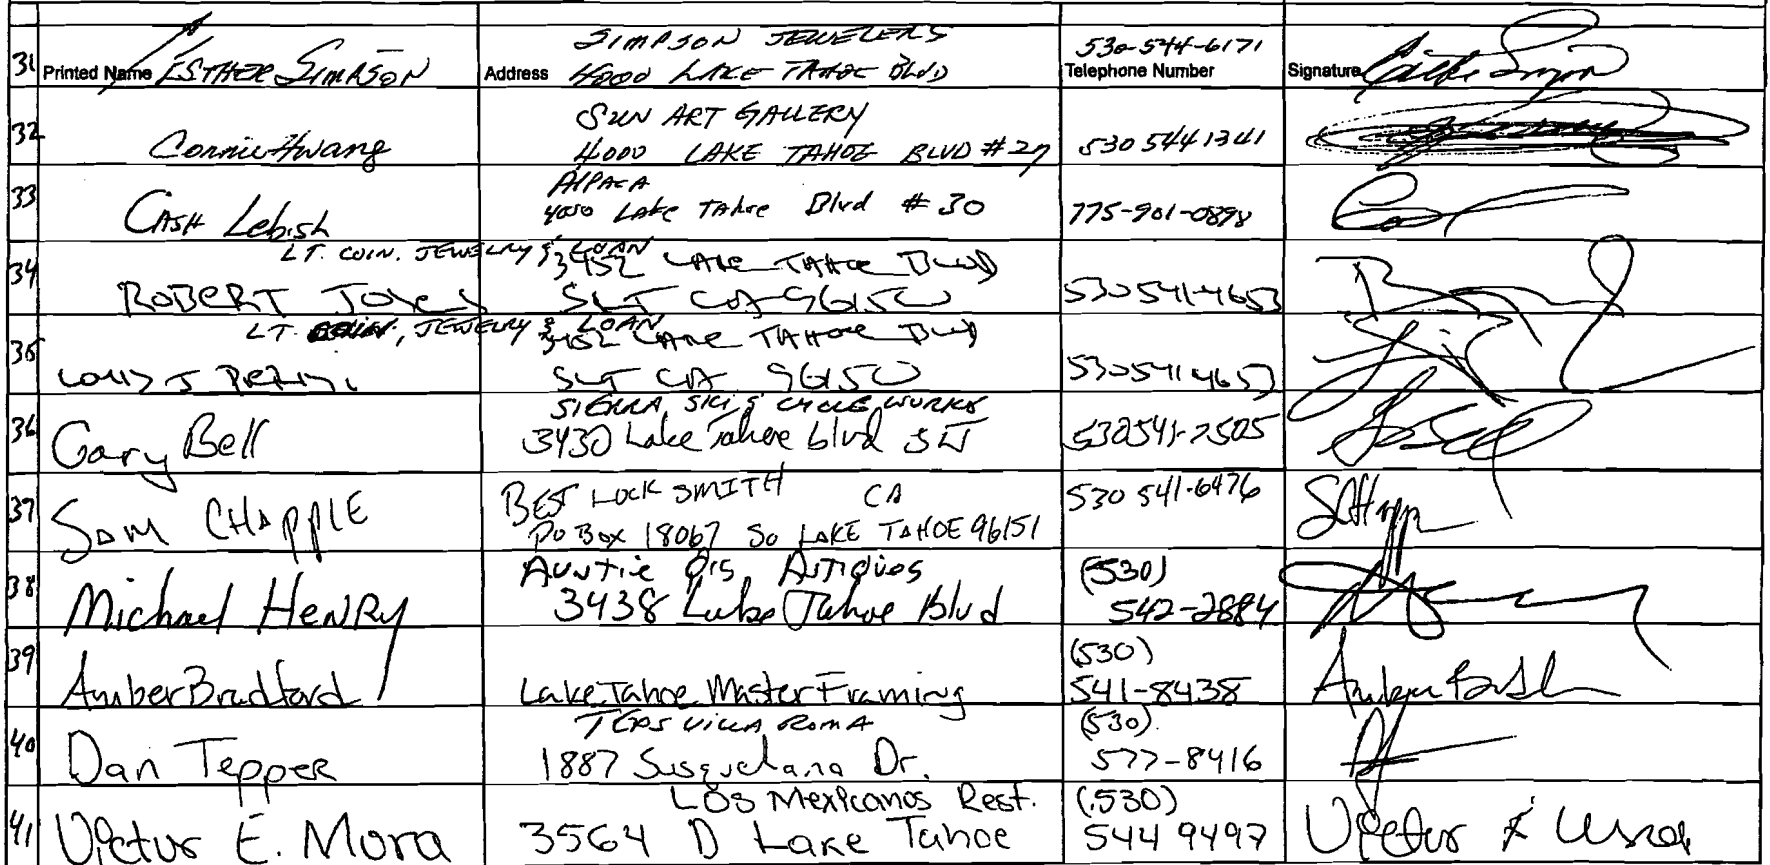 31 Printed Name ESTHER SIMPSON Address SIMPSON JEWELERS
4000 LAKE TAHOE BLVD 530-544-6171
Telephone Number Signature
32 Connie Hwang SUN ART GALLERY
4000 LAKE TAHOE BLVD #27 530 544 1341
33 CASH Lebish AlPACA
4000 Lake Tahoe Blvd #30 775-901-0898
34 LT. COIN, JEWELRY & LOAN
ROBERT 3452 LAKE TAHOE BLVD
SLT CA 96150 530 541-4653
35 LT. COIN, JEWELRY & LOAN
3452 LAKE TAHOE BLVD
SLT CA 96150 530 541 4653
36 Gary Bell SIERRA SKI & CYCLE WORKS
3430 Lake Tahoe blvd SLT 530 541-7505
37 Sam CHAPPLE BEST LOCKSMITH CA
PO Box 18067 So LAKE TAHOE 96151 530 541-6476
38 Michael HENRY Auntie Q's Antiques
3438 Lake Tahoe Blvd (530)
542-2884
39 Amber Bradford Lake Tahoe Master Framing (530)
541-8438 Amber
40 Dan Tepper TEPS VILLA ROMA
1887 Susquehana Dr. (530)
577-8416
41 Victor E. Mora Los Mexicanos Rest.
3564 D Lake Tahoe (530)
544 9497 Victor E